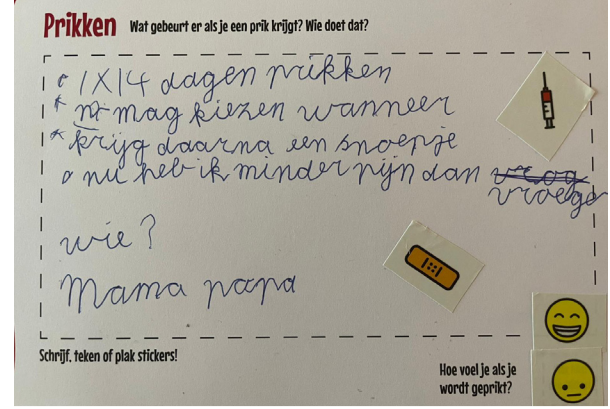 Prikken Wat gebeurt er als je een prik krijgt? Wie doet dat?
1X14 dagen prikken
* mag kiezen wanneer
* krijg daarna een snoepje
nu heb ik minder pijn dan vroeger
wie?
Mama papa
Schrijf, teken of plak stickers!
Hoe voel je als je
wordt geprikt?